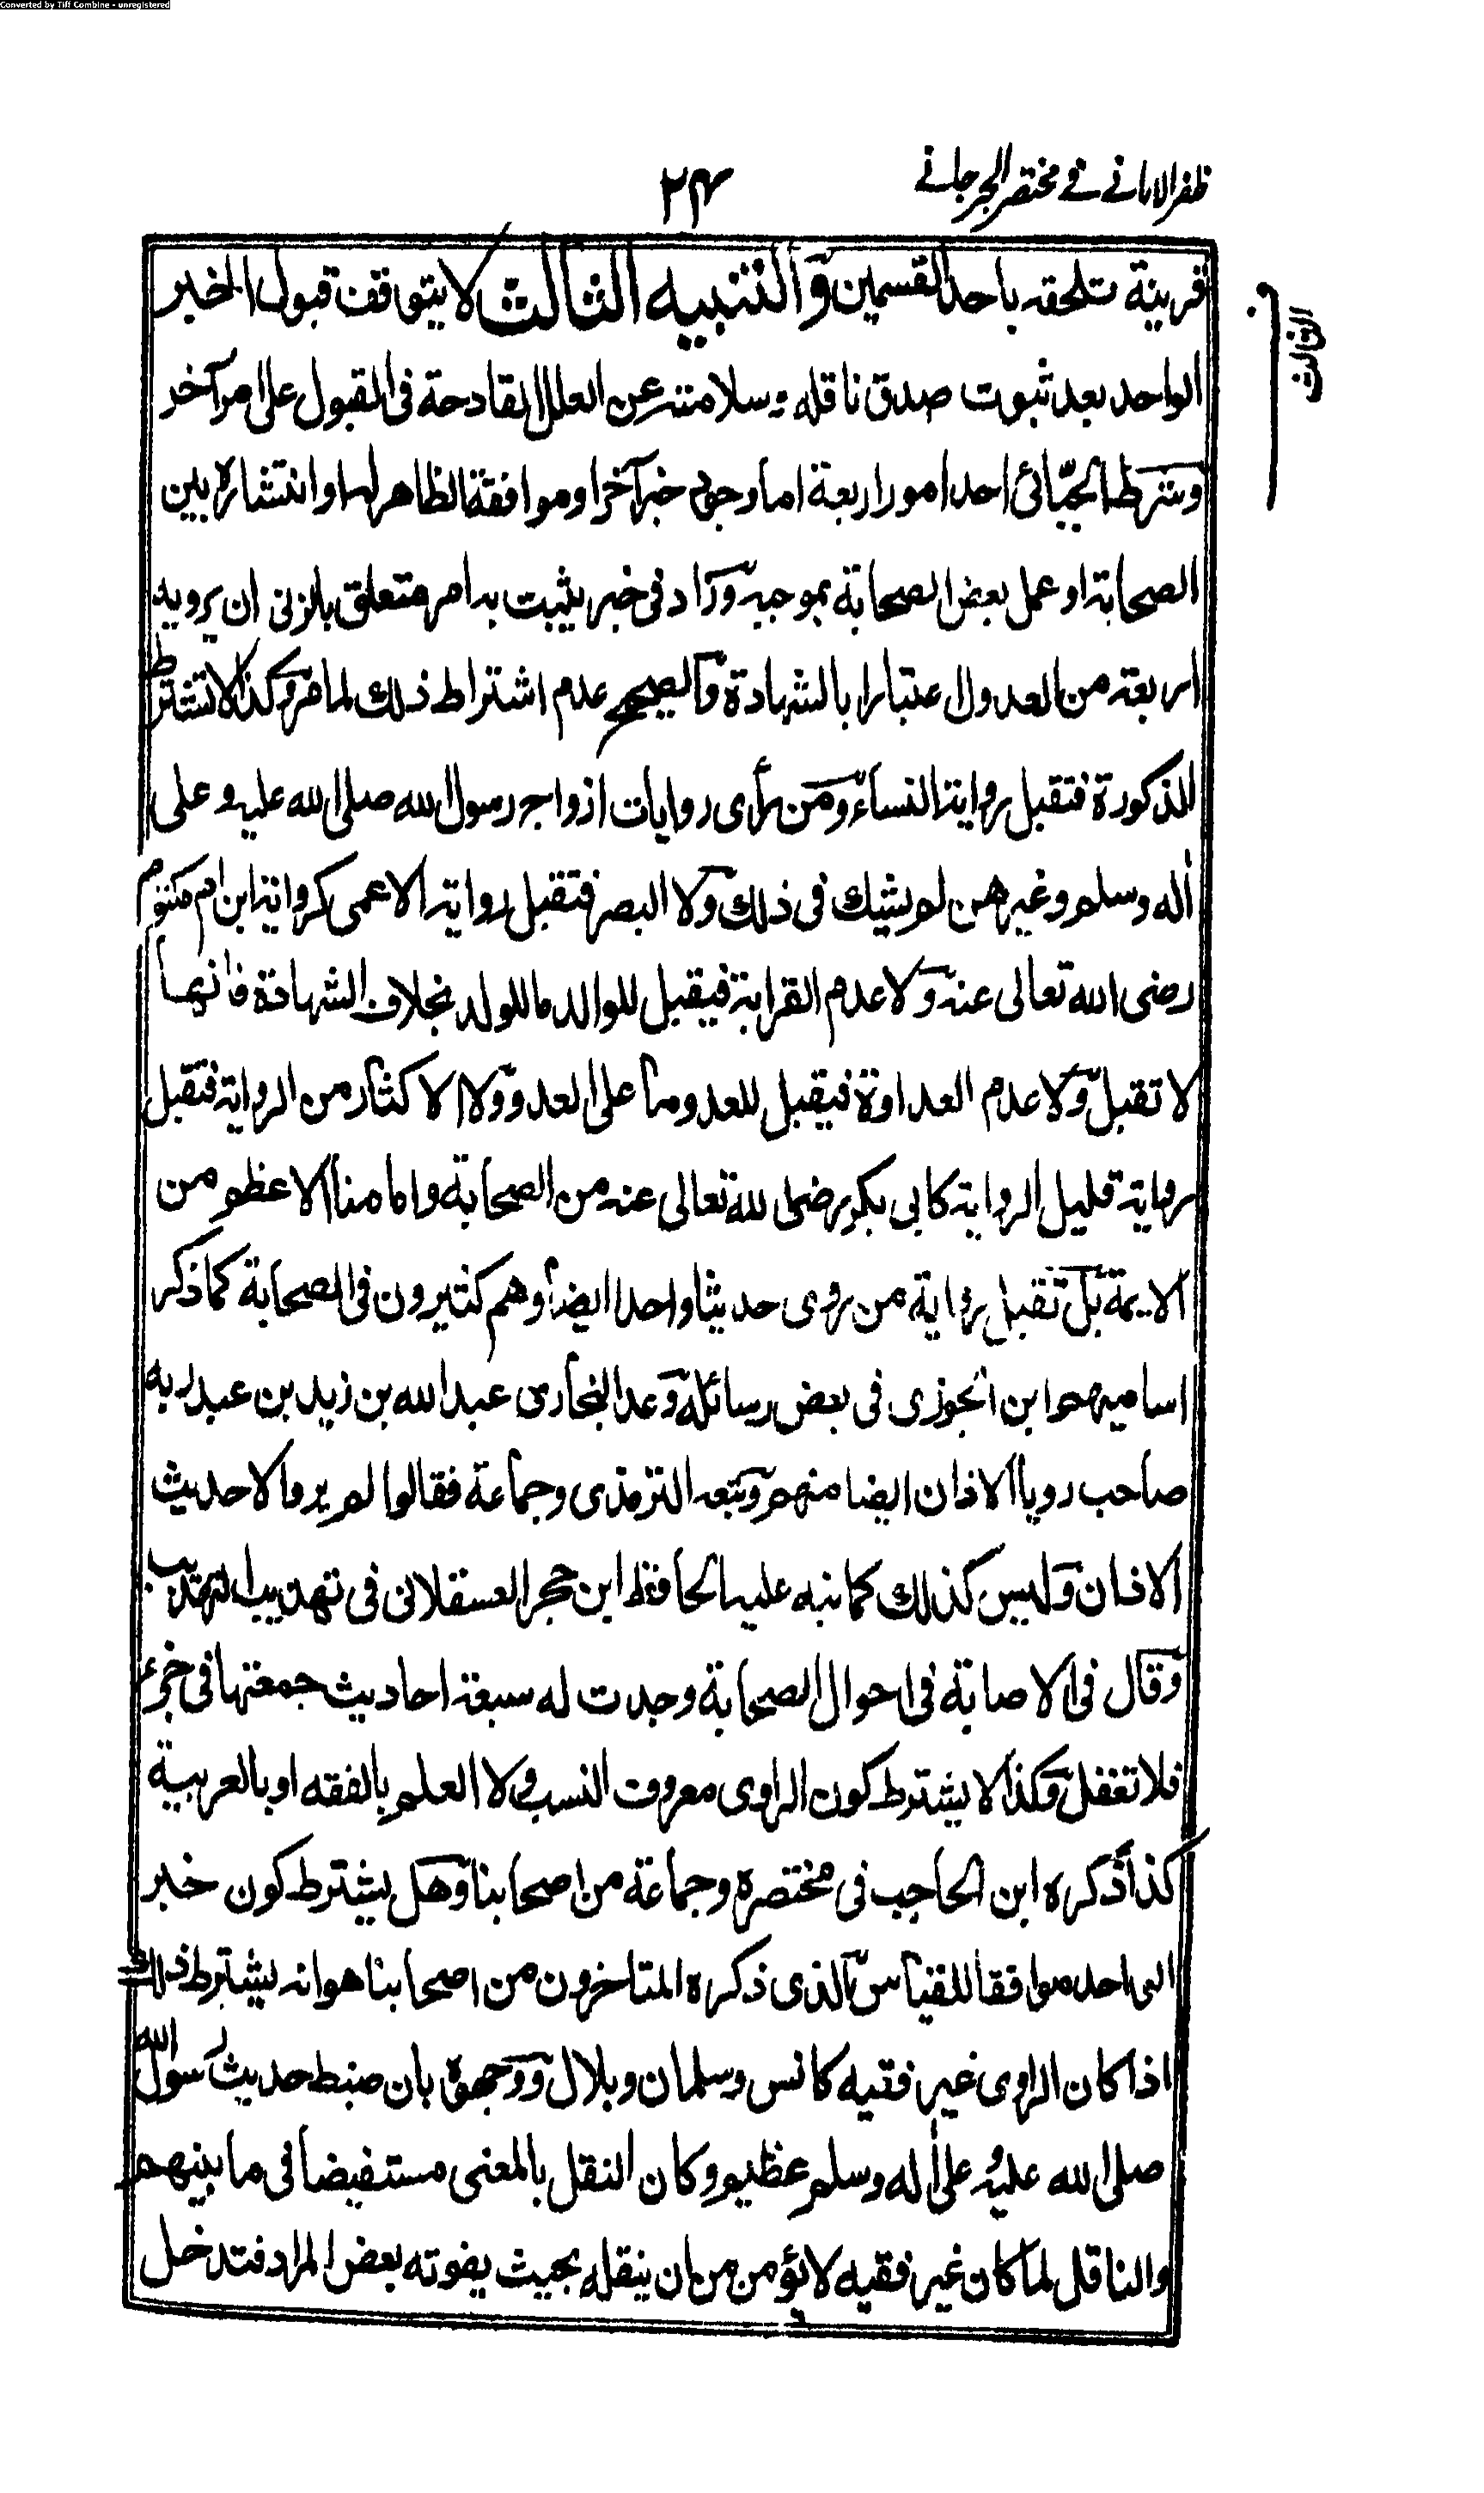 Converted by Tiff Combine - unregistered
ظفر الامانی فی مختصر الجرجانی
٢٤
الثالث
قرينة تلحقه باحد القسمين والتنبيه الثالث لا يتوقف قبول الخبر
الواحد بعد ثبوت صدق ناقله وسلامته عن العلل القادحة فى القبول على امر آخر
وشرط الجبّائى احد امور اربعة اما وجود خبر آخر او موافقة الظاهر لها وانتشاره بين
الصحابة او عمل بعض الصحابة بموجبه وزاد فى خبر يثبت به امر متعلق بالزنى ان يرويه
اربعة من العدول اعتبارا بالشهادة والصحيح عدم اشتراط ذلك لما مر وكذا لا تشترط
الذكورة فتقبل رواية النساء ومن رأى روايات ازواج رسول الله صلى الله عليه وعلى
آله وسلم وغيرهن لم يشك فى ذلك ولا البصر فتقبل رواية الاعمى كرواية ابن ام مكتوم
رضى الله تعالى عنه ولا عدم القرابة فيقبل للوالد ما للولد بخلاف الشهادة فانها
لا تقبل ولا عدم العداوة فيقبل للعدو ما على العدو ولا الاكثار من الرواية فتقبل
رواية قليل الرواية كابى بكر رضى الله تعالى عنه من الصحابة وامامنا الاعظم من
الايمة بل تقبل رواية من روى حديثا واحدا ايضا وهم كثيرون فى الصحابة كما ذكر
اساميهم ابن الجوزى فى بعض رسائله وعد البخارى عبد الله بن زيد بن عبد ربه
صاحب رويا الاذان ايضا منهم وتبعه الترمذى وجماعة فقالوا لم يرو الا حديث
الاذان وليس كذلك كما نبه عليه الحافظ ابن حجر العسقلانى فى تهذيب التهذيب
وقال فى الاصابة فى احوال الصحابة وجدت له سبعة احاديث جمعتها فى جزء
فلا تغفل وكذا لا يشترط كون الراوى معروف النسب ولا العلم بالفقه او بالعربية
كذا ذكره ابن الحاجب فى مختصره وجماعة من اصحابنا وهل يشترط كون خبر
الواحد موافقا للقياس الذى ذكره المتاخرون من اصحابنا هو انه يشترط ذلك
اذا كان الراوى غير فقيه كانس وسلمان وبلال ووجهوه بان ضبط حديث رسول الله
صلى الله عليه وعلى آله وسلم عظيم وكان النقل بالمعنى مستفيضا فى ما بينهم
والناقل لما كان غير فقيه لا يؤمن من ان ينقله بحيث يفوته بعض المراد فتدخل